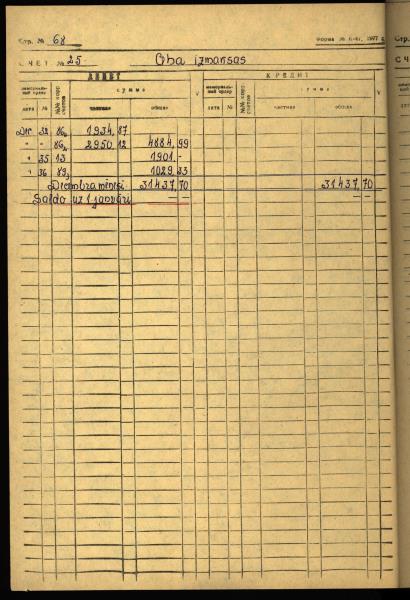 Стр. № 68
Форма № К-41, 1977 г.
СЧЕТ № 25 Citas izmaksas
ДЕБЕТ КРЕДИТ
мемориальный ордер №№ корр. счетов сумма V мемориальный ордер №№ корр. счетов сумма V
дата № частная общая дата № частная общая
Dec 32 86 1934,87
" - 86 2950,12 4884,99
" 35 13 1901,-
" 36 89 1029,33
Decembra mēnesī 31437,70 31437,70
Saldo uz 1 janvāri — — — —
Стр.
СЧ